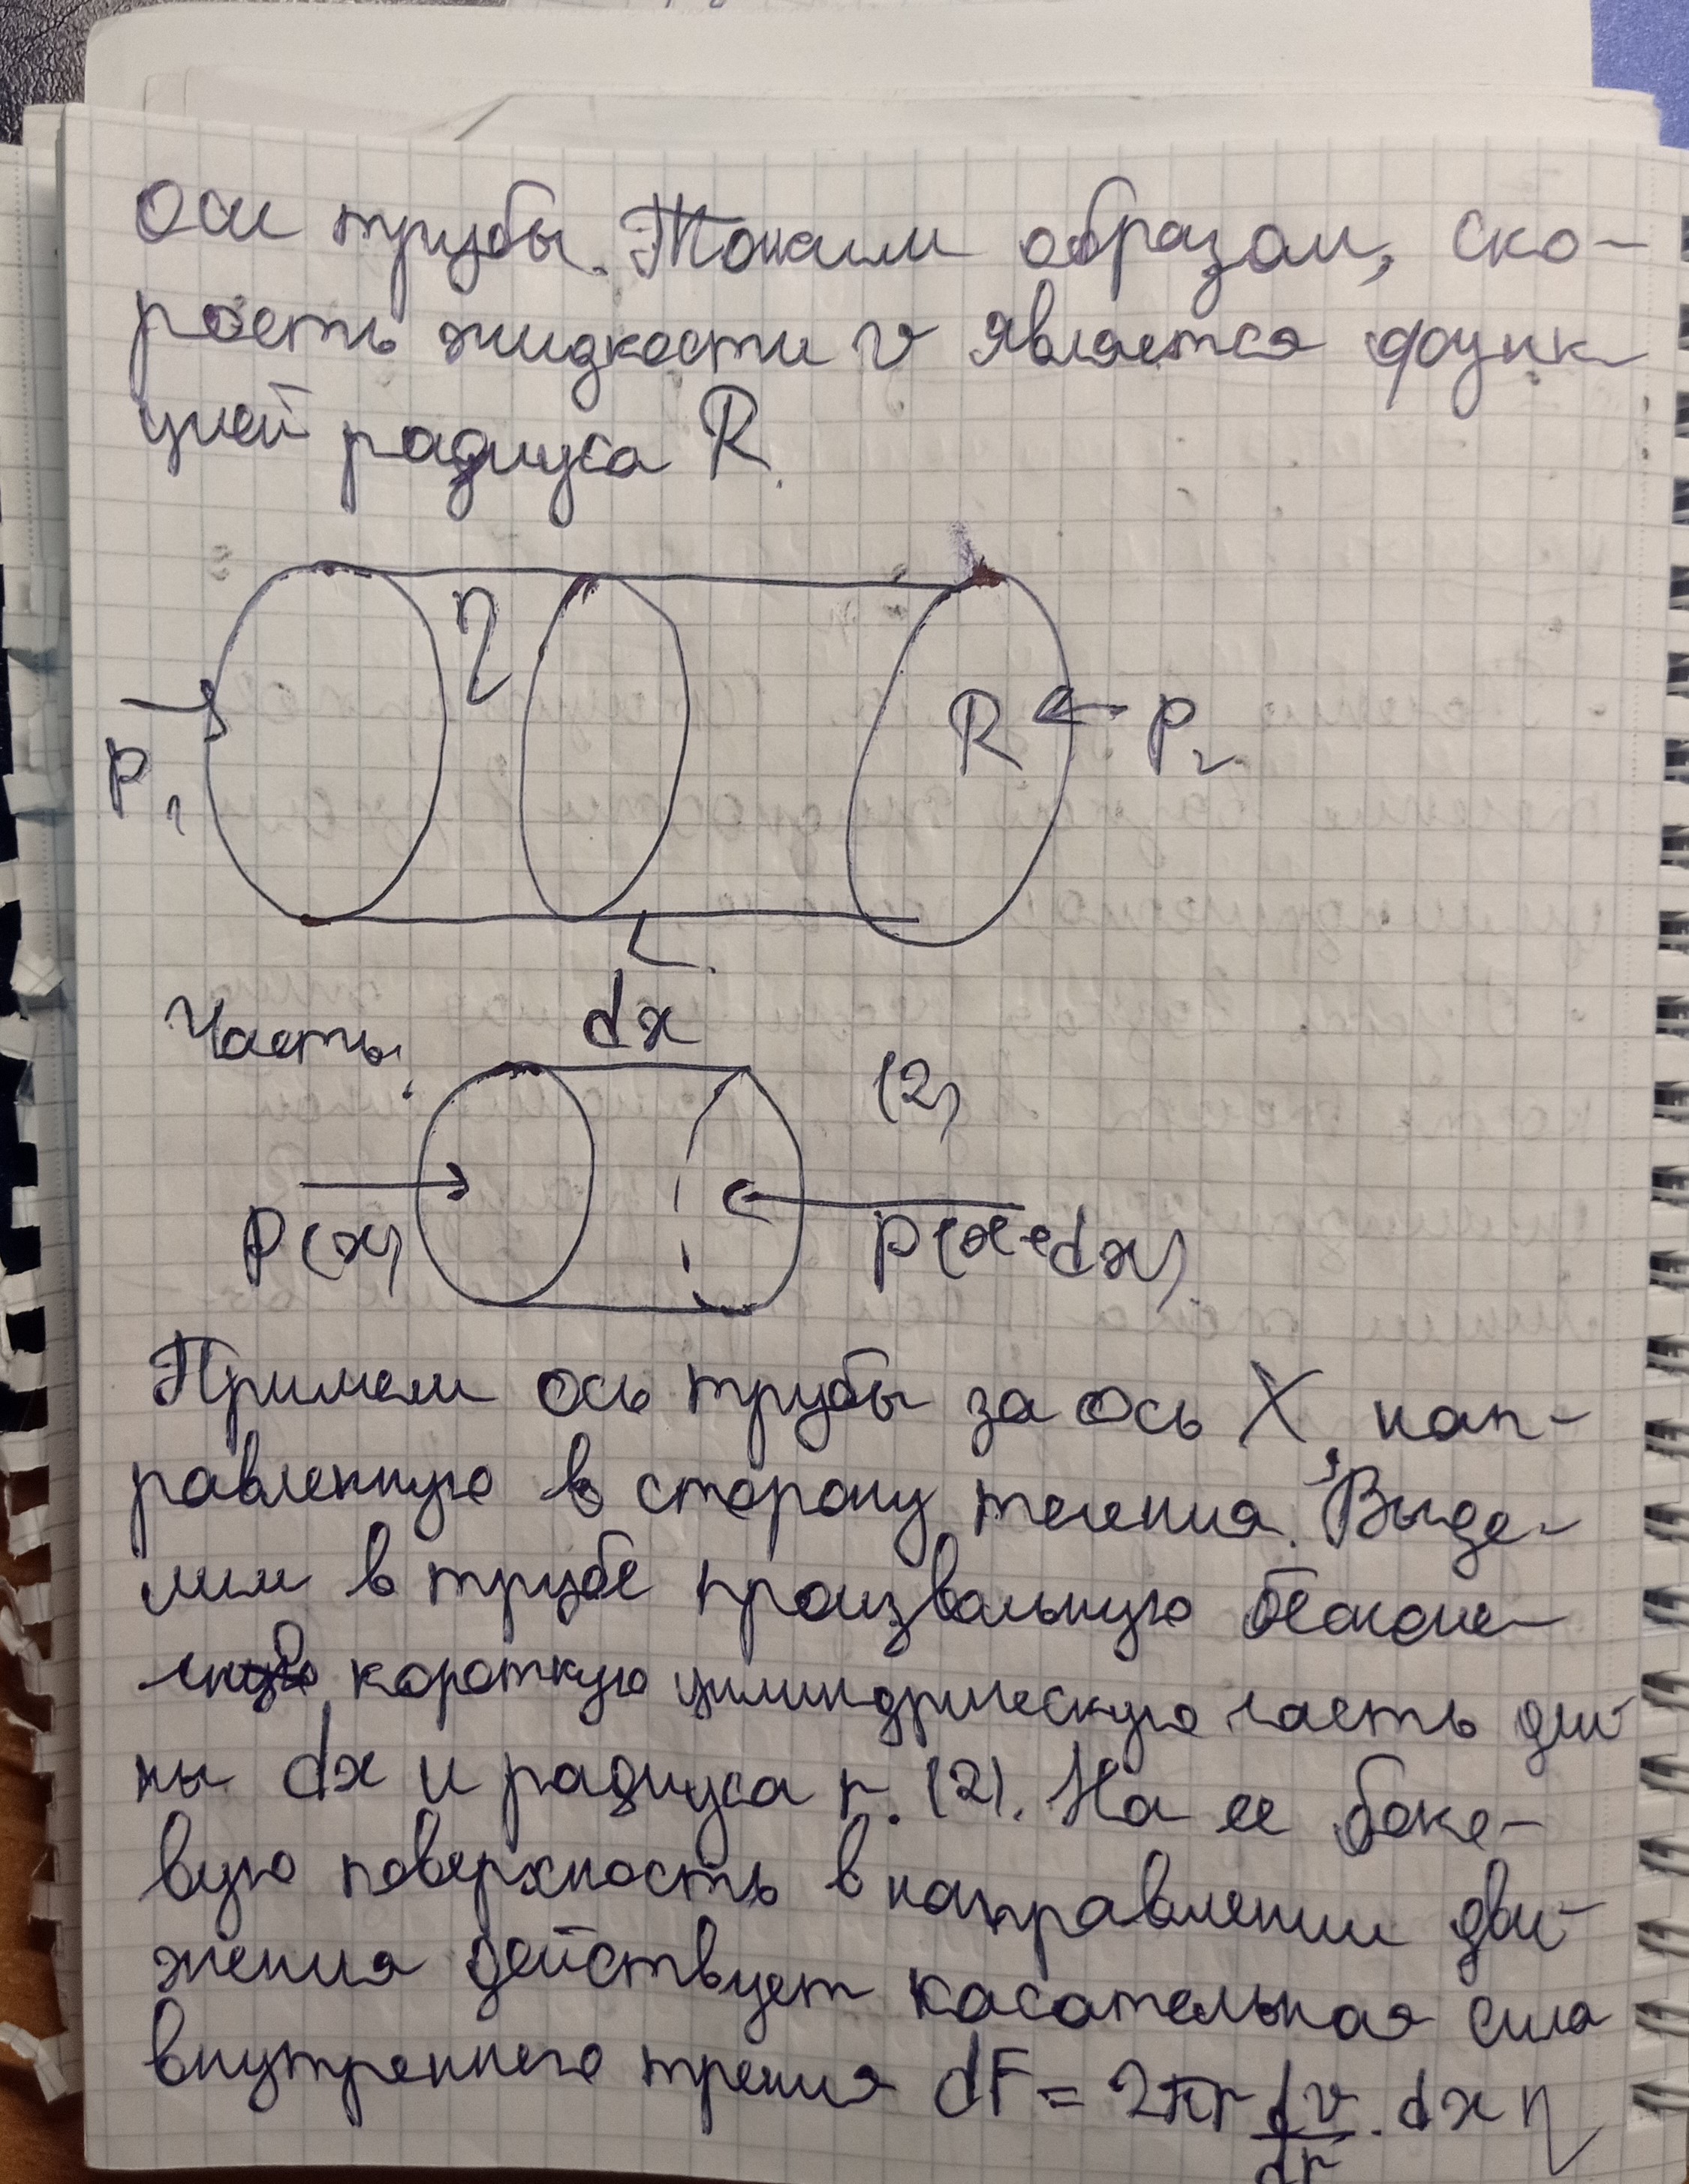 оси трубы. Таким образом, ско-
рость жидкости v является функ
цией радиуса R.
η
P₁
R
P₂
L
Часть:
dx
(2)
P(x)
P(x+dx)
Примем ось трубы за ось X, нап-
равленную в сторону течения. Выде-
лим в трубе произвольную бесконе-
чно короткую цилиндрическую часть дли
ны dx и радиуса r. (2). На ее боко-
вую поверхность в направлении дви-
жения действует касательная сила
внутреннего трения dF = 2πr dv/dr · dx η